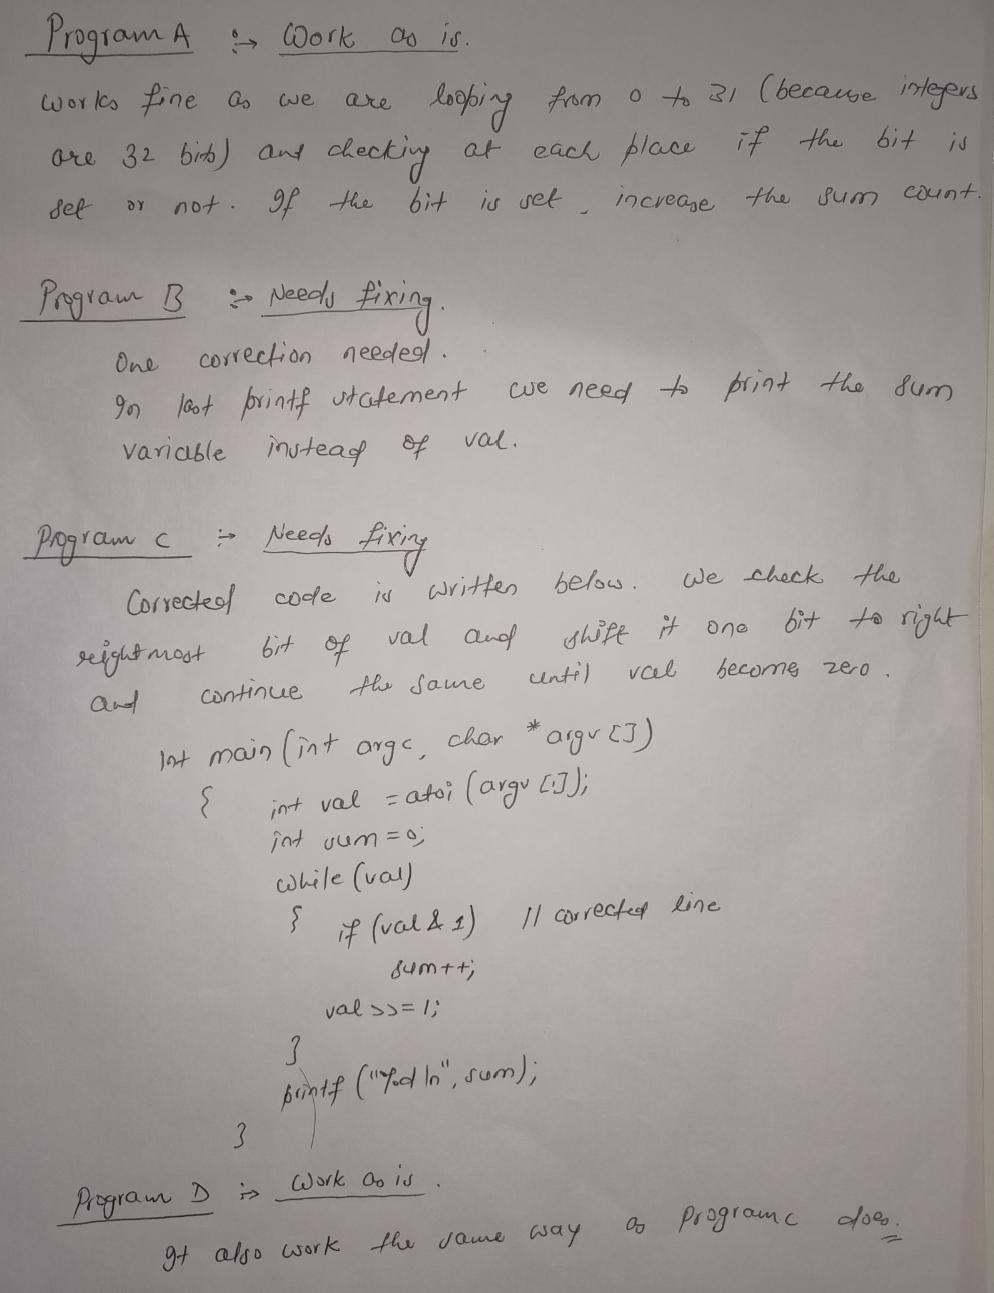 Program A :→ Work as is.
Works fine as we are looping from 0 to 31 (because integers
are 32 bits) and checking at each place if the bit is
set or not. If the bit is set, increase the sum count.
Program B :→ Needs fixing.
One correction needed.
In last printf statement we need to print the sum
variable instead of val.
Program C :→ Needs fixing
Corrected code is written below. We check the
reightmost bit of val and shift it one bit to right
and continue the same until val becomes zero.
Int main (int argc, char *argv [])
{ int val = atoi (argv [1]);
int sum = 0;
while (val)
{ if (val & 1) // corrected line
sum++;
val >>= 1;
}
printf ("%d\n", sum);
}
Program D :→ Work as is.
It also work the same way as Program c does.